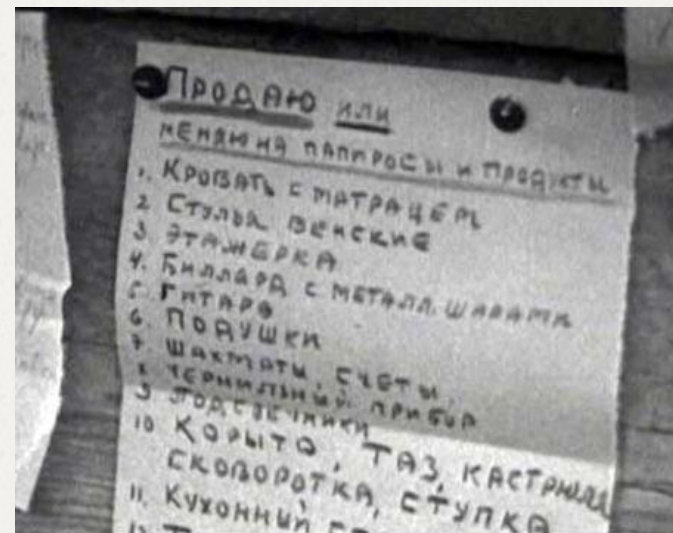 Продаю или
меняю на папиросы и продукты
1. Кровать с матрацем
2 Стулья венские
3 Этажерка
4. Биллард с металл. шарами
5. Гитара
6. Подушки
7. Шахматы, счеты,
8 Чернильный прибор
9 Подсвечники
10 Корыто, таз, кастрюля
сковоротка, ступка
11. Кухонный
12